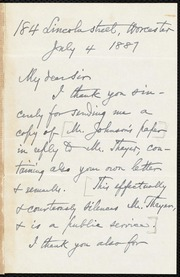 184 Lincoln street, Worcester
July 4 1887
My dear Sir
I thank you sin-
cerely for sending me a
copy of [Mr. Johnson's paper
in reply to Mr. Thayer, con-
taining also your own letter
& remarks. [This effectually
& courteously silences Mr. Thayer,
& is a public service.]
I thank you also for